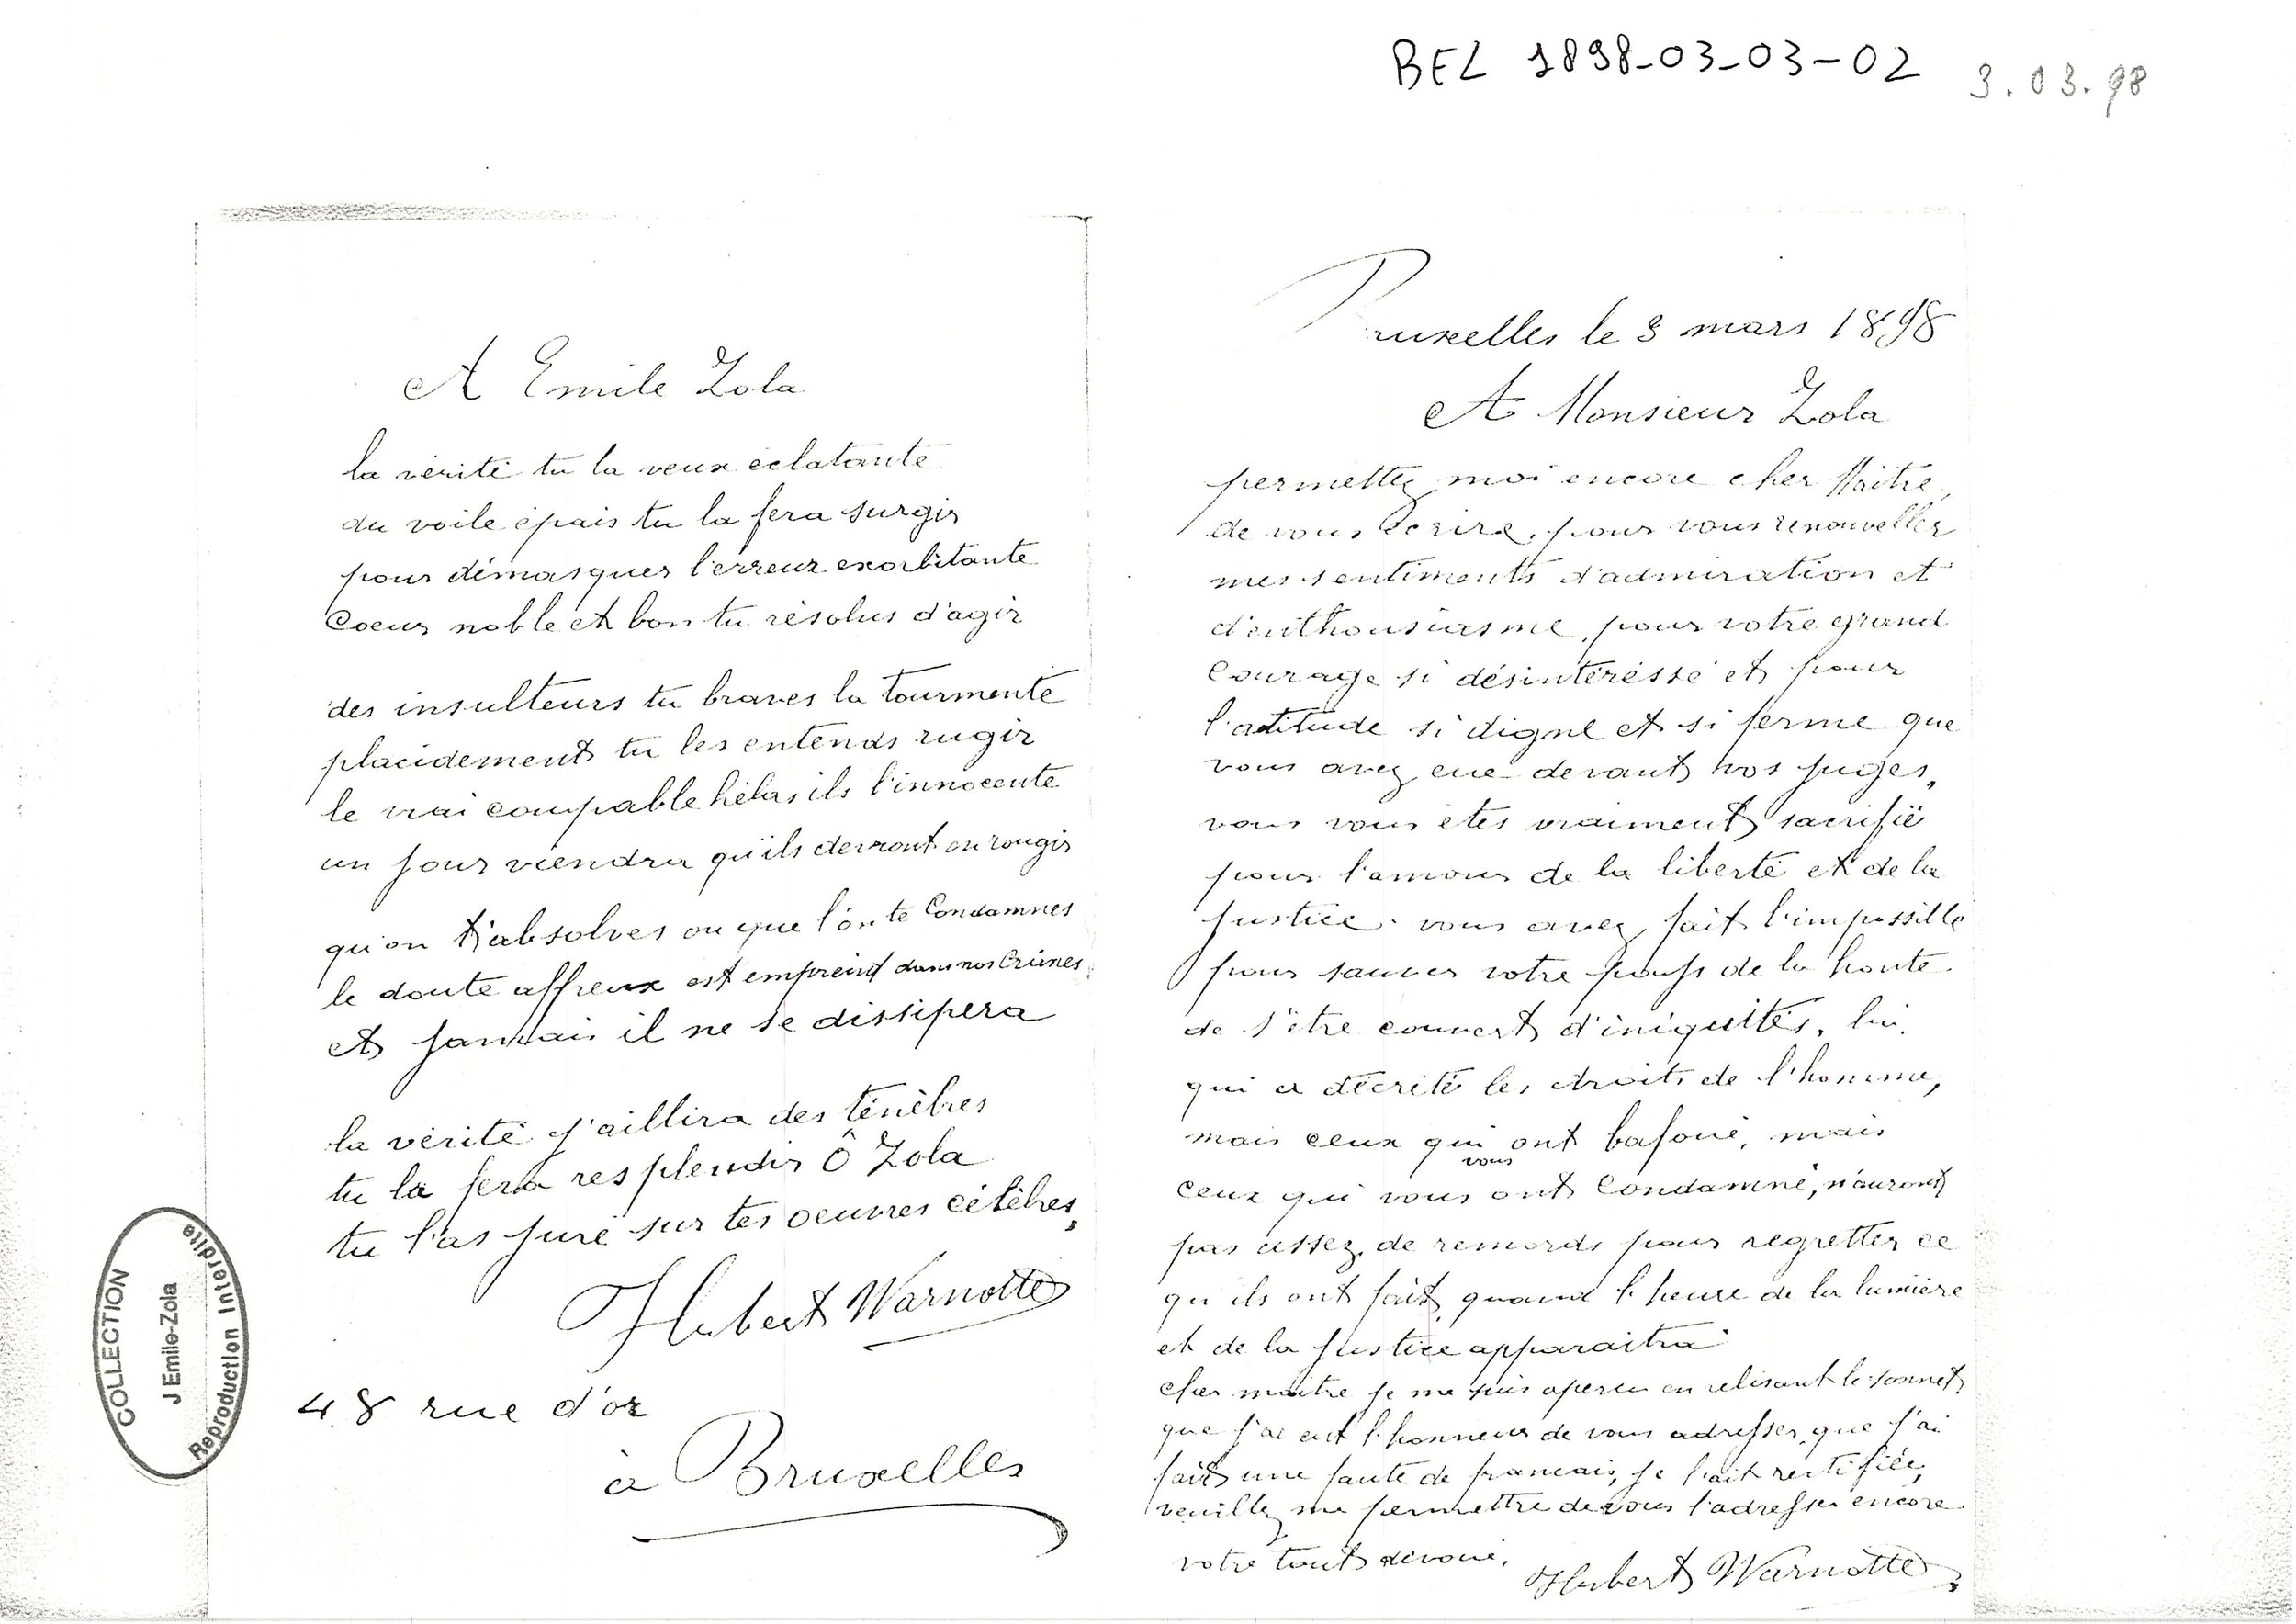 BEL 1898-03-03-02
3.03.98
A Emile Zola
la vérité tu la veux éclatante
du voile épais tu la fera surgir
pour démasquer l'erreur exorbitante
Coeur noble et bon tu résolus d'agir
des insulteurs tu braves la tourmente
placidement tu les entends rugir
le vrai coupable hélas ils l'innocente
un jour viendra qu'ils devront en rougir
qu'on t'absolves ou que l'on te Condamnes
le doute affreux est empreint dans nos Crânes,
et jamais il ne se dissipera
la vérité j'aillira des ténèbres
tu la fera resplendir Ô Zola
tu l'as juré sur tes oeuvres célèbres,
Hubert Warnotte
48 rue d'or
à Bruxelles
COLLECTION
J Emile-Zola
Reproduction Interdite
Bruxelles le 3 mars 1898
A Monsieur Zola
permettez moi encore cher Maître,
de vous écrire, pour vous renouveller
mes sentiments d'admiration et
d'enthousiasme, pour votre grand
Courage si désintéréssé et pour
l'attitude si digne et si ferme que
vous avez eue devant vos juges,
vous vous êtes vraiment sacrifié
pour l'amour de la liberté et de la
justice. vous avez fait l'impossible
pour sauver votre pays de la honte
de s'être couvert d'iniquités, lui,
qui a décrété les droits de l'homme,
mais ceux qui vous ont bafoué, mais
ceux qui vous ont Condamné, n'auront
pas assez de remords pour regretter ce
qu'ils ont fait, quand l'heure de la lumière
et de la justice apparaitra
cher maître je me suis aperçu en relisant le sonnet,
que j'ai eut l'honneur de vous adresser, que j'ai
fait une faute de francais, je l'ait rectifiée,
veuillez me permettre de vous l'adresser encore
votre tout dévoué,
Hubert Warnotte,